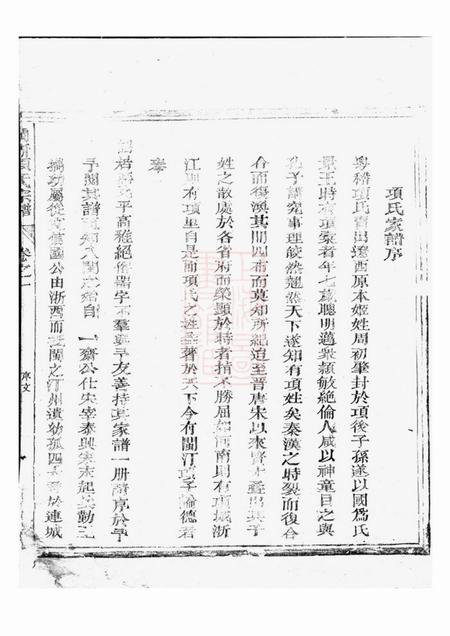 項氏家譜序
粵稽項氏實出遼西原本姬姓周初肇封於項後子孫遂以國為氏
景王時有項橐者年七歲聰明邁衆穎敏絕倫人咸以神童目之與
孔子講究事理皎然超然天下遂知有項姓矣秦漢之時裂而復合
合而復渙其間四布而莫知所紀迨至晉唐宋以來賢才疊出其子
姓之散處於各省府而榮顯於時者指不勝屈如河南則有項城浙
江則有項里自是而項氏之姓益著於天下今有閩汀項子論德者
平高雅絕俗器宇不羣與予友善持其家譜一册請序於予
予閱其譜知入閩之始自 一齋公仕宋宰泰興宋末起義勤王
公由浙西而 閩之汀州遺幼孤四 於連城
項氏宗譜
卷之一
序文